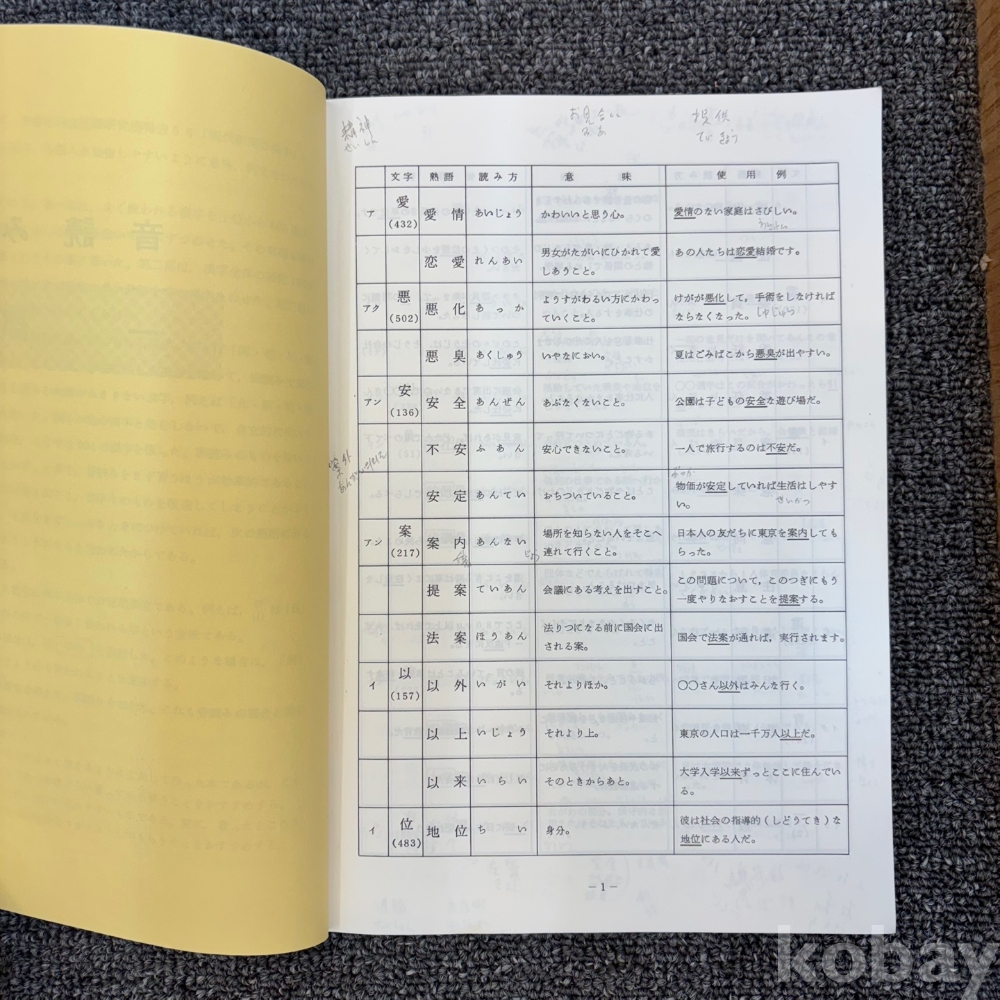 精神
せいしん
お見合い
みあ
提供
ていきょう
文字 熟語 読み方 意味 使用例
ア 愛(432) 愛情 あいじょう かわいいと思う心。 愛情のない家庭はさびしい。
恋愛 れんあい 男女がたがいにひかれて愛しあうこと。 あの人たちは恋愛結婚です。
アク 悪(502) 悪化 あっか ようすがわるい方にかわっていくこと。 けがが悪化して，手術をしなければならなくなった。
しゅじゅつ
悪臭 あくしゅう いやなにおい。 夏はごみばこから悪臭が出やすい。
アン 安(136) 安全 あんぜん あぶなくないこと。 公園は子どもの安全な遊び場だ。
不安 ふあん 安心できないこと。 一人で旅行するのは不安だ。
案外
ぶっか
安定 あんてい おちついていること。 物価が安定していれば生活はしやすい。
せいかつ
アン 案(217) 案内 あんない 場所を知らない人をそこへ連れて行くこと。 日本人の友だちに東京を案内してもらった。
提案 ていあん 会議にある考えを出すこと。 この問題について，このつぎにもう一度やりなおすことを提案する。
法案 ほうあん 法りつになる前に国会に出される案。 国会で法案が通れば，実行されます。
イ 以(157) 以外 いがい それよりほか。 〇〇さん以外はみんな行く。
以上 いじょう それより上。 東京の人口は一千万人以上だ。
以来 いらい そのときからあと。 大学入学以来ずっとここに住んでいる。
イ 位(483) 地位 ちい 身分。 彼は社会の指導的(しどうてき)な地位にある人だ。
－1－
音読み
kobay